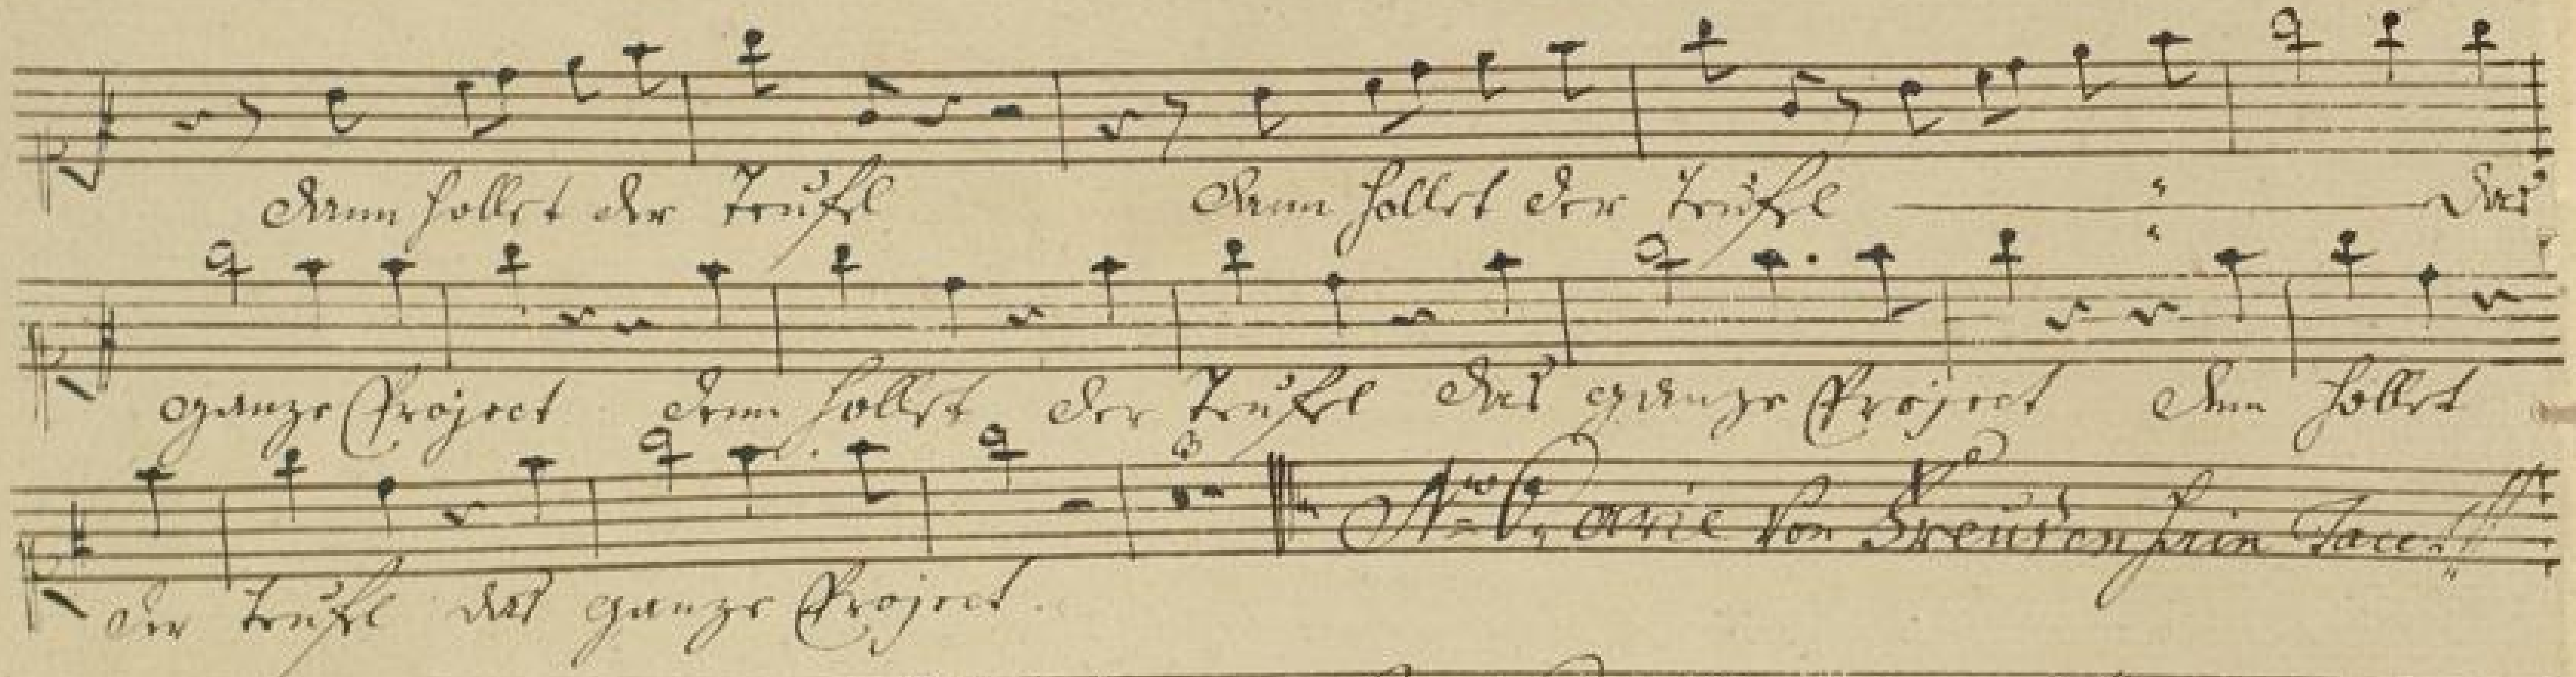 dann hollet der Teufel dann hollet der Teufel das
ganze Project denn hollet der Teufel das ganze Project denn hollet
6
der Teufel das ganze Project. arie von Freudenhein Tace.